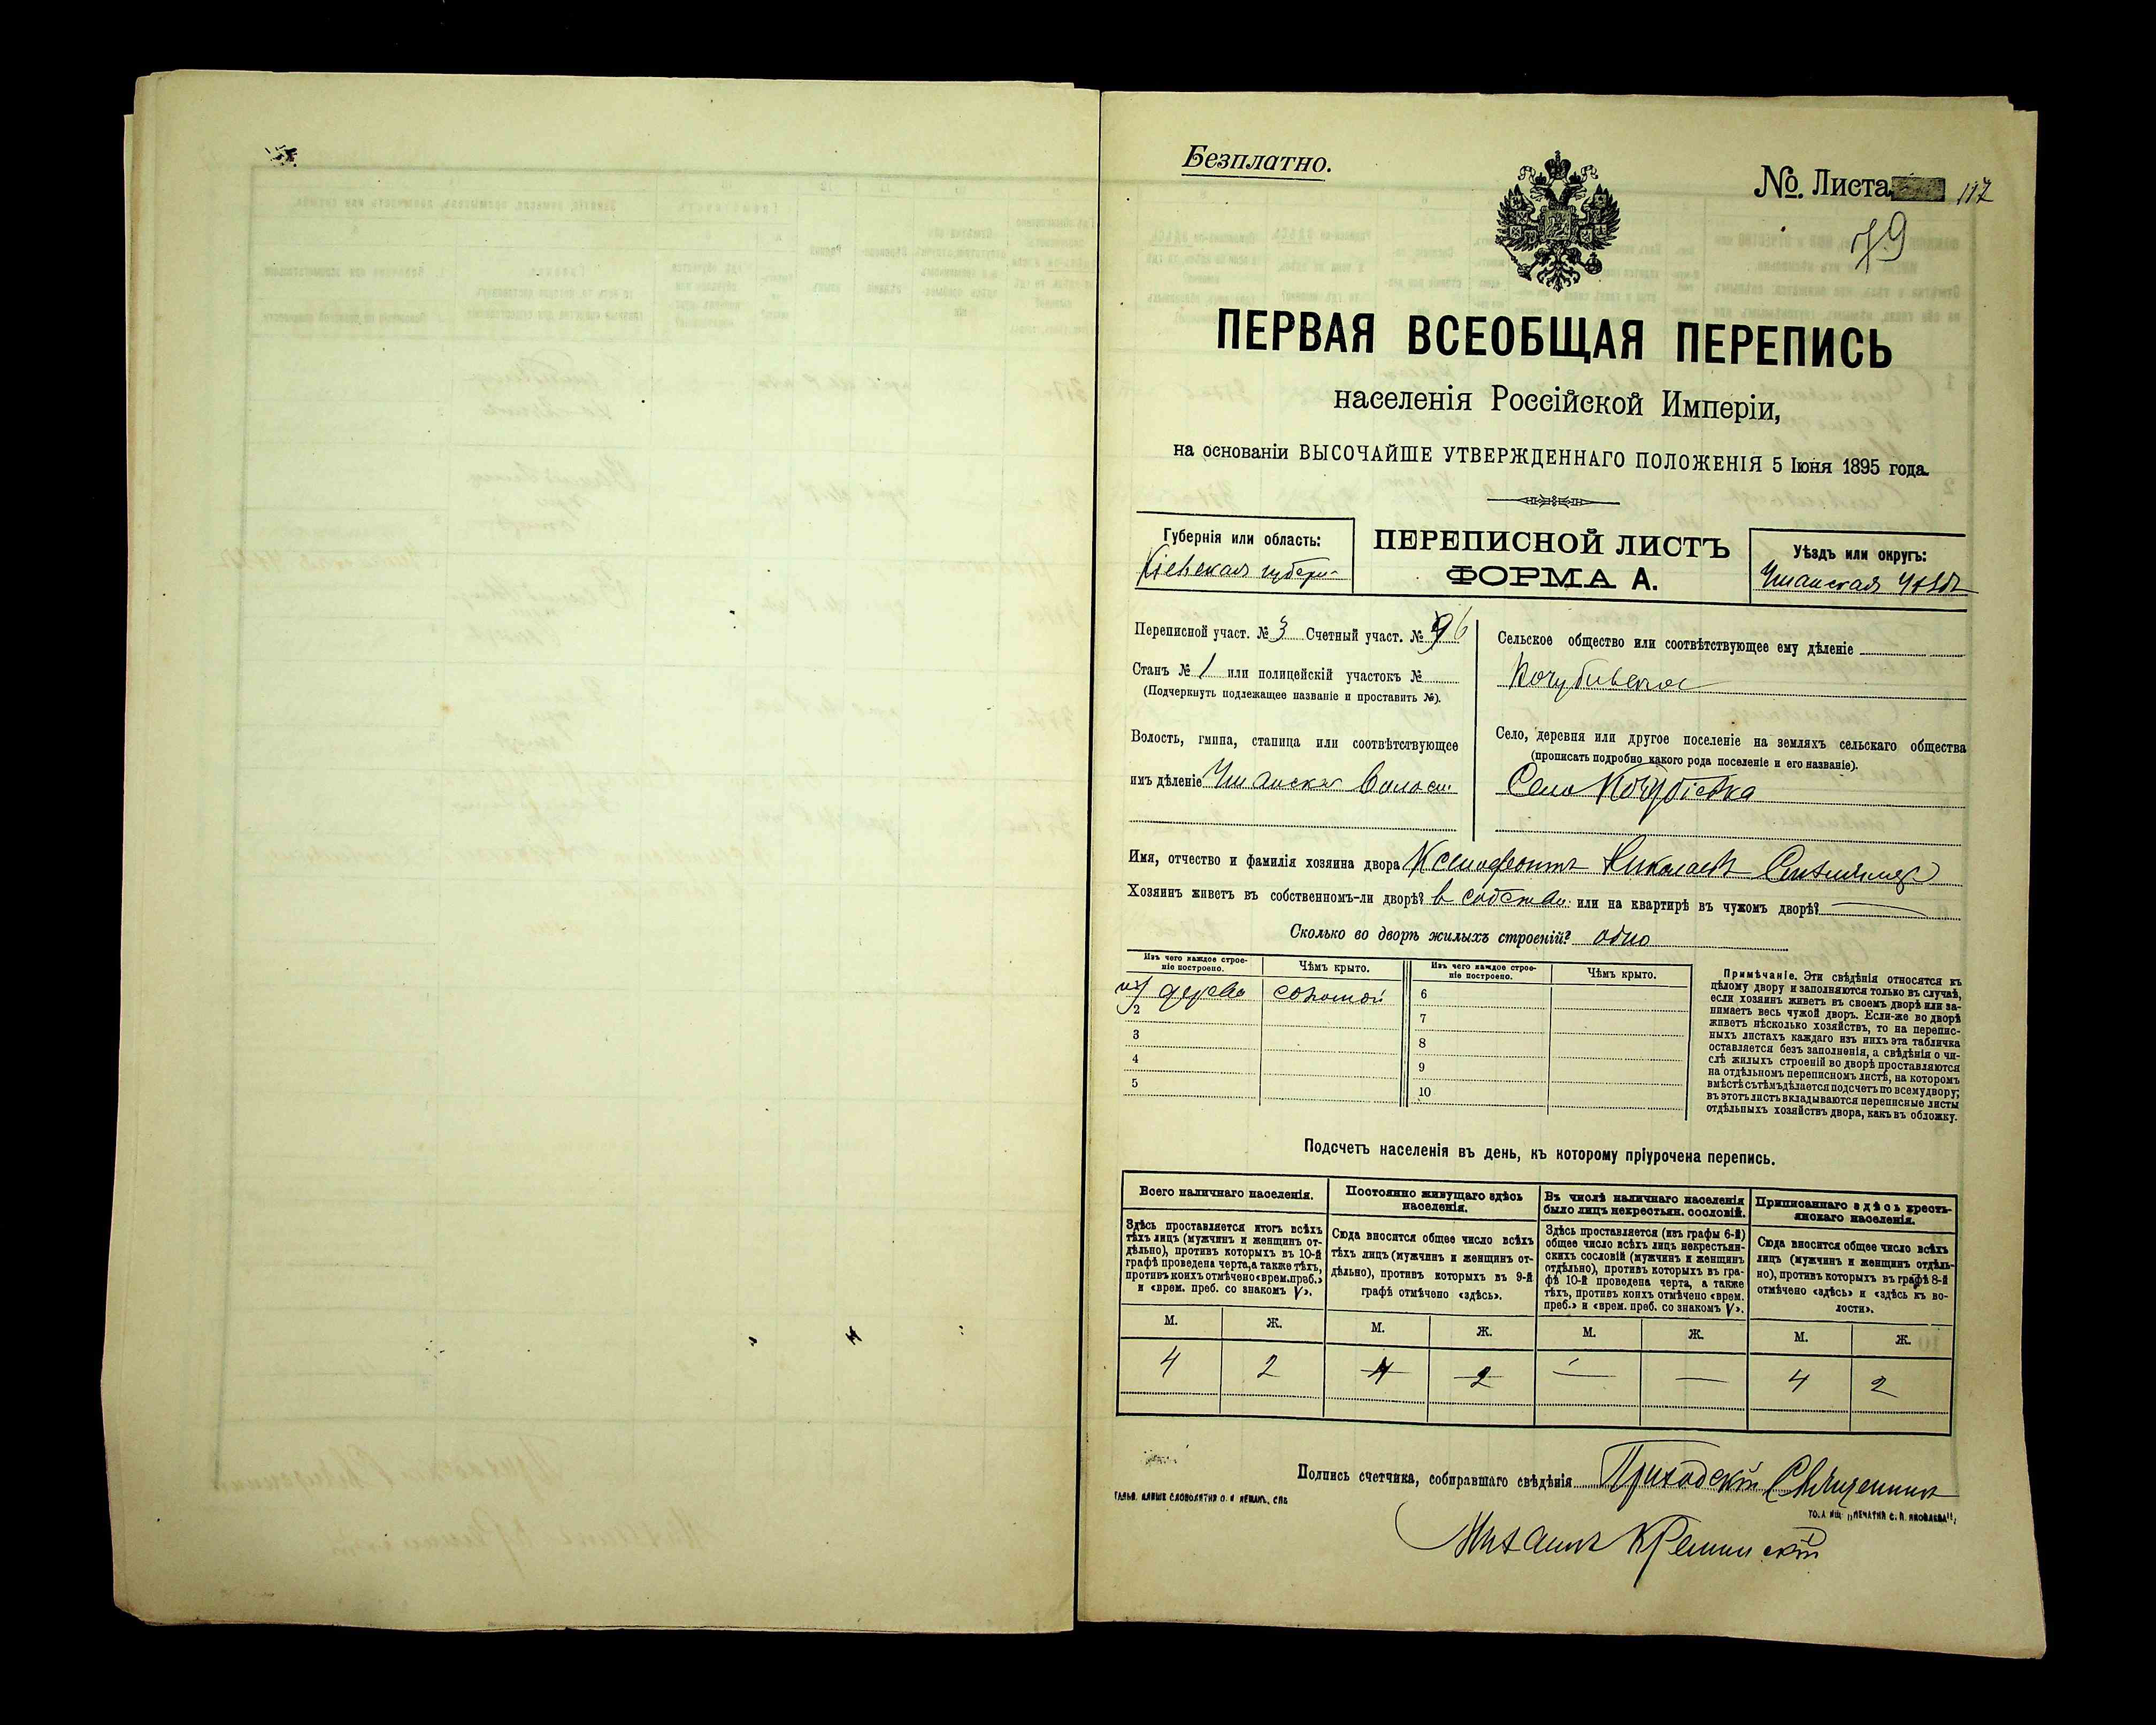 Безплатно.
№ Листа 117
79
ПЕРВАЯ ВСЕОБЩАЯ ПЕРЕПИСЬ
населенія Россійской Имперіи,
на основаніи ВЫСОЧАЙШЕ УТВЕРЖДЕННАГО ПОЛОЖЕНІЯ 5 Іюня 1895 года.
Губернія или область:
Кіевская губерн
ПЕРЕПИСНОЙ ЛИСТЪ
ФОРМА А.
Уѣздъ или округъ:
Уманская Уѣздъ
Переписной участ. № 3 Счетный участ. № 6
Станъ № 1 или полицейскій участокъ №
(Подчеркнуть подлежащее названіе и проставить №).
Волость, гмина, станица или соотвѣтствующее
имъ дѣленіе Уманска Волост.
Сельское общество или соотвѣтствующее ему дѣленіе
Кочубивское
Село, деревня или другое поселеніе на земляхъ сельскаго общества
(прописать подробно какого рода поселеніе и его названіе).
Село Кочубіевка
Имя, отчество и фамилія хозяина двора Ксенофонтъ Николаевъ
Хозяинъ живетъ въ собственномъ-ли дворѣ? в собствен. или на квартирѣ въ чужомъ дворѣ?
Сколько во дворѣ жилыхъ строеній? одно
Изъ чего каждое строеніе построено. Чѣмъ крыто. Изъ чего каждое строеніе построено. Чѣмъ крыто.
из дерева соломой 6
2 7
3 8
4 9
5 10
Примѣчаніе. Эти свѣдѣнія относятся къ
цѣлому двору и заполняются только въ случаѣ,
если хозяинъ живетъ въ своемъ дворѣ или за-
нимаетъ весь чужой дворъ. Если-же во дворѣ
живетъ нѣсколько хозяйствъ, то на перепис-
ныхъ листахъ каждаго изъ нихъ эта табличка
оставляется безъ заполненія, а свѣдѣнія о чи-
слѣ жилыхъ строеній во дворѣ проставляются
на отдѣльномъ переписномъ листѣ, на которомъ
вмѣстѣ съ тѣмъ дѣлается подсчетъ по всему двору;
въ этотъ листъ вкладываются переписные листы
отдѣльныхъ хозяйствъ двора, какъ въ обложку.
Подсчетъ населенія въ день, къ которому пріурочена перепись.
Всего наличнаго населенія.
Здѣсь проставляется итогъ всѣхъ
тѣхъ лицъ (мужчинъ и женщинъ от-
дѣльно), противъ которыхъ въ 10-й
графѣ проведена черта, а также тѣхъ,
противъ коихъ отмѣчено «врем. преб.»
и «врем. преб. со знакомъ V».
Постоянно живущаго здѣсь
населенія.
Сюда вносится общее число всѣхъ
тѣхъ лицъ (мужчинъ и женщинъ от-
дѣльно), противъ которыхъ въ 9-й
графѣ отмѣчено «здѣсь».
Въ числѣ наличнаго населенія
было лицъ некрестьян. сословій.
Здѣсь проставляется (изъ графы 6-й)
общее число всѣхъ лицъ некрестьян-
скихъ сословій (мужчинъ и женщинъ
отдѣльно), противъ которыхъ въ гра-
фѣ 10-й проведена черта, а также
тѣхъ, противъ коихъ отмѣчено «врем.
преб.» и «врем. преб. со знакомъ V».
Приписаннаго здѣсь кресть-
янскаго населенія.
Сюда вносится общее число всѣхъ
лицъ (мужчинъ и женщинъ отдѣль-
но), противъ которыхъ въ графѣ 8-й
отмѣчено «здѣсь» и «здѣсь къ во-
лости».
М. Ж. М. Ж. М. Ж. М. Ж.
4 2 4 2 — — 4 2
Подпись счетчика, собиравшаго свѣдѣнія Приходскій Священникъ
Михаилъ Креминскій